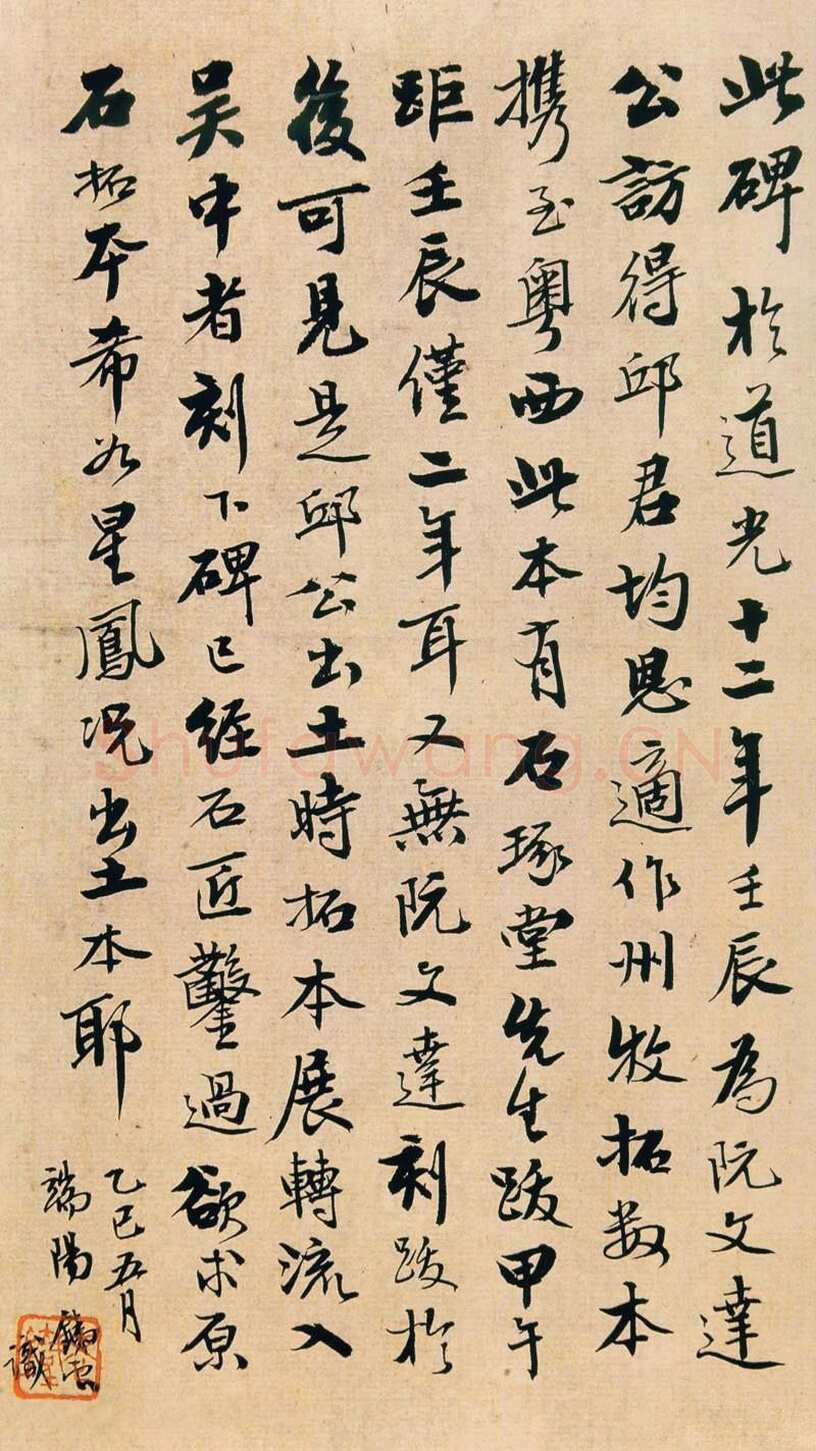 此碑於道光十二年壬辰為阮文達
公訪得邱君均恩適作州牧拓数本
攜至粤西此本有石琢堂先生跋甲午
距壬辰僅二年耳又無阮文達刻跋於
後可見是邱公出土時拓本展轉流入
吴中者刻下碑已经石匠鑿過欲求原
石拓本希如星鳳况出土本耶
乙巳五月
端陽
識
Shufawang.CN